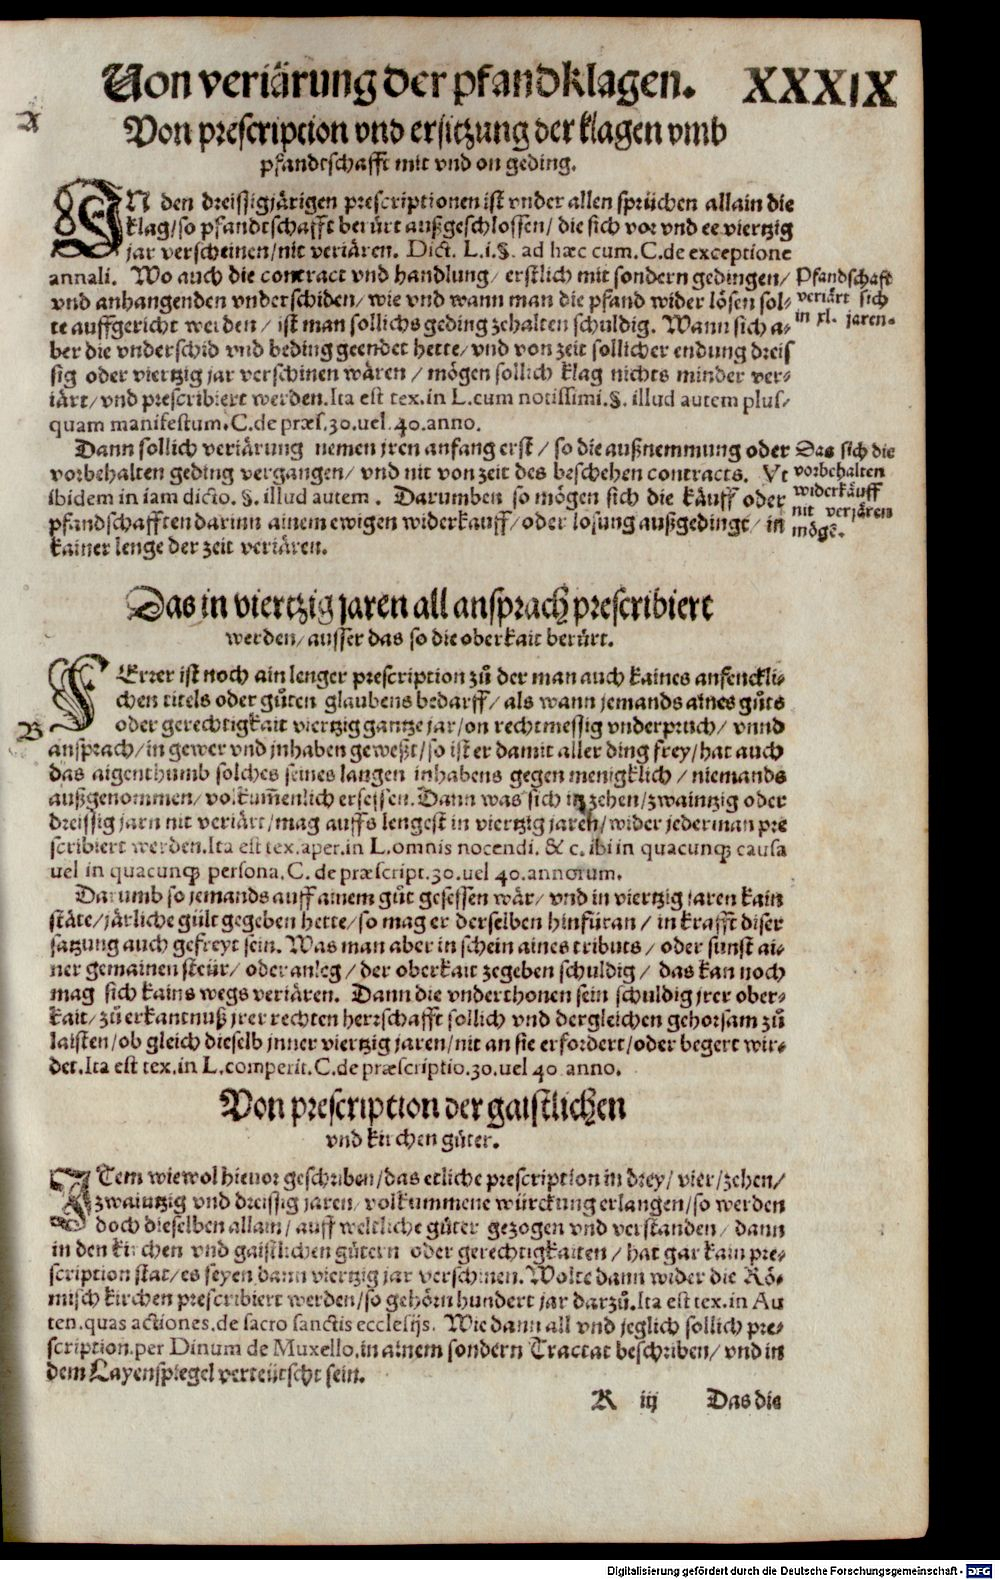 Von veriärung der pfandklagen. XXXIX
A
Von prescription vnd ersitzung der klagen vmb
pfandtschafft mit vnd on geding.
IN den dreissigjärigen prescriptionen ist vnder allen sprüchen allain die
klag/so pfandtschafft berürt außgeschlossen/die sich vor vnd ee viertzig
jar verscheinen/nit veriären. Dict. L.i.§. ad hæc cum.C.de exceptione
annali. Wo auch die contract vnd handlung/ erstlich mit sondern gedingen/
vnd anhangenden vnderschiden/ wie vnd wann man die pfand wider lösen sol-
te auffgericht werden/ ist man sollichs geding zehalten schuldig. Wann sich a-
ber die vnderschid vnd beding geendet hette/ vnd von zeit sollicher endung dreis
sig oder viertzig jar verschinen wären/ mögen sollich klag nichts minder ver-
iärt/ vnd prescribiert werden.Ita est tex.in L.cum notissimi.§. illud autem plus-
quam manifestum.C.de præs.30.uel.40.anno.
Pfandschafft
veriärt sich
in xl. jaren.
Dann sollich veriärung nemen jren anfang erst/ so die außnemmung oder
vorbehalten geding vergangen/ vnd nit von zeit des beschehen contracts. Vt
ibidem in iam dicto.§.illud autem. Darumben so mögen sich die käuff oder
pfandschafften darinn ainem ewigen widerkauff/oder losung außgedingt/in
kainer lenge der zeit veriären.
Das sich die
vorbehalten
widerkäuff
nit verjären
mögē.
Das in viertzig jaren all ansprach prescribiert
werden/ausser das so die oberkait berürt.
FErrer ist noch ain lenger prescription zů der man auch kaines anfenckli-
chen titels oder gůten glaubens bedarff/ als wann jemands aines gůts
oder gerechtigkait viertzig gantze jar/on rechtmessig vnderpruch/ vnnd
B
ansprach/in gewer vnd jnhaben geweßt/so ist er damit aller ding frey/hat auch
das aigenthumb solches seines langen inhabens gegen menigklich/ niemands
außgenommen/ volkum̄enlich ersessen. Dann was sich in zehen/zwaintzig oder
dreissig jarn nit veriärt/mag auffs lengest in viertzig jaren/wider jederman pre
scribiert werden.Ita est tex.aper.in L.omnis nocendi. & c. ibi in quacunqȝ causa
uel in quacunqȝ persona.C. de præscript.30.uel 40.annorum.
Darumb so jemands auff ainem gůt gesessen wär/ vnd in viertzig jaren kain
stäte/järliche gült gegeben hette/so mag er derselben hinfüran/ in krafft diser
satzung auch gefreyt sein. Was man aber in schein aines tributs/ oder sunst ai-
ner gemainen steür/ oder anleg/ der oberkait zegeben schuldig/ das kan noch
mag sich kains wegs veriären. Dann die vnderthonen sein schuldig jrer ober-
kait/ zů erkantnuß jrer rechten herrschafft sollich vnd dergleichen gehorsam zů
laisten/ob gleich dieselb jnner viertzig jaren/nit an sie erfordert/oder begert wir-
det.Ita est tex.in L.comperit.C.de præscriptio.30.uel 40 anno.
Von prescription der gaistlichen
vnd kirchen güter.
ITem wiewol hieuor geschriben/das etliche prescription in drey/ vier/zehen/
zwaintzig vnd dreissig jaren/ volkummene würckung erlangen/so werden
doch dieselben allain/ auff weltliche güter gezogen vnd verstanden/ dann
in den kirchen vnd gaistlichen gütern oder gerechtigkaiten/ hat gar kain pre-
scription stat/es seyen dann viertzig jar verschinen. Wolte dann wider die Rö-
misch kirchen prescribiert werden/so gehörn hundert jar darzů.Ita est tex.in Au
ten.quas actiones.de sacro sanctis ecclesijs. Wie dann all vnd jeglich sollich pre-
scription.per Dinum de Muxello.in ainem sondern Tractat beschriben/ vnd in
dem Layenspiegel verteütscht sein.
R iij Das die
Digitalisierung gefördert durch die Deutsche Forschungsgemeinschaft - DFG